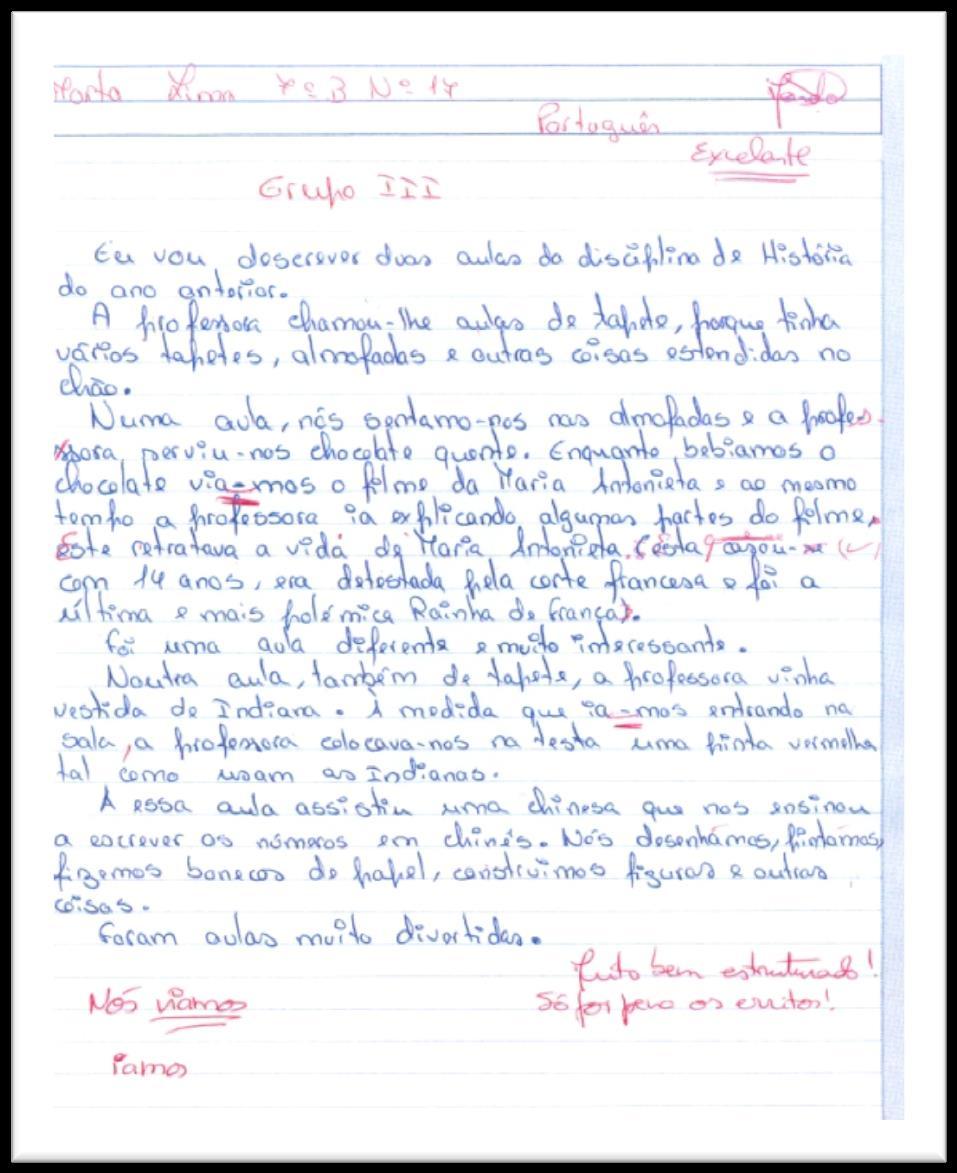 Marta Lima 7º B Nº 17
Português
Excelente
Grupo III
Eu vou descrever duas aulas da disciplina de História
do ano anterior.
A professora chamou-lhe aulas de tapete, porque tinha
vários tapetes, almofadas e outras coisas estendidas no
chão.
Numa aula, nós sentamo-nos nas almofadas e a profes-
sora serviu-nos chocolate quente. Enquanto bebiamos o
chocolate via-mos o filme da Maria Antonieta e ao mesmo
tempo a professora ia explicando algumas partes do filme,
Este retratava a vida de Maria Antonieta. (esta casou-se
com 14 anos, era detestada pela corte francesa e foi a
última e mais polémica Rainha de França).
Foi uma aula diferente e muito interessante.
Noutra aula, também de tapete, a professora vinha
vestida de Indiana. À medida que ia-mos entrando na
sala, a professora colocava-nos na testa uma pinta vermelha
tal como usam as Indianas.
A essa aula assistiu uma chinesa que nos ensinou
a escrever os números em chinês. Nós desenhámos, pintámos,
fizemos bonecos de papel, construímos figuras e outras
coisas.
Foram aulas muito divertidas.
Muito bem estruturado!
Nós víamos
Só foi pena os erritos!
íamos